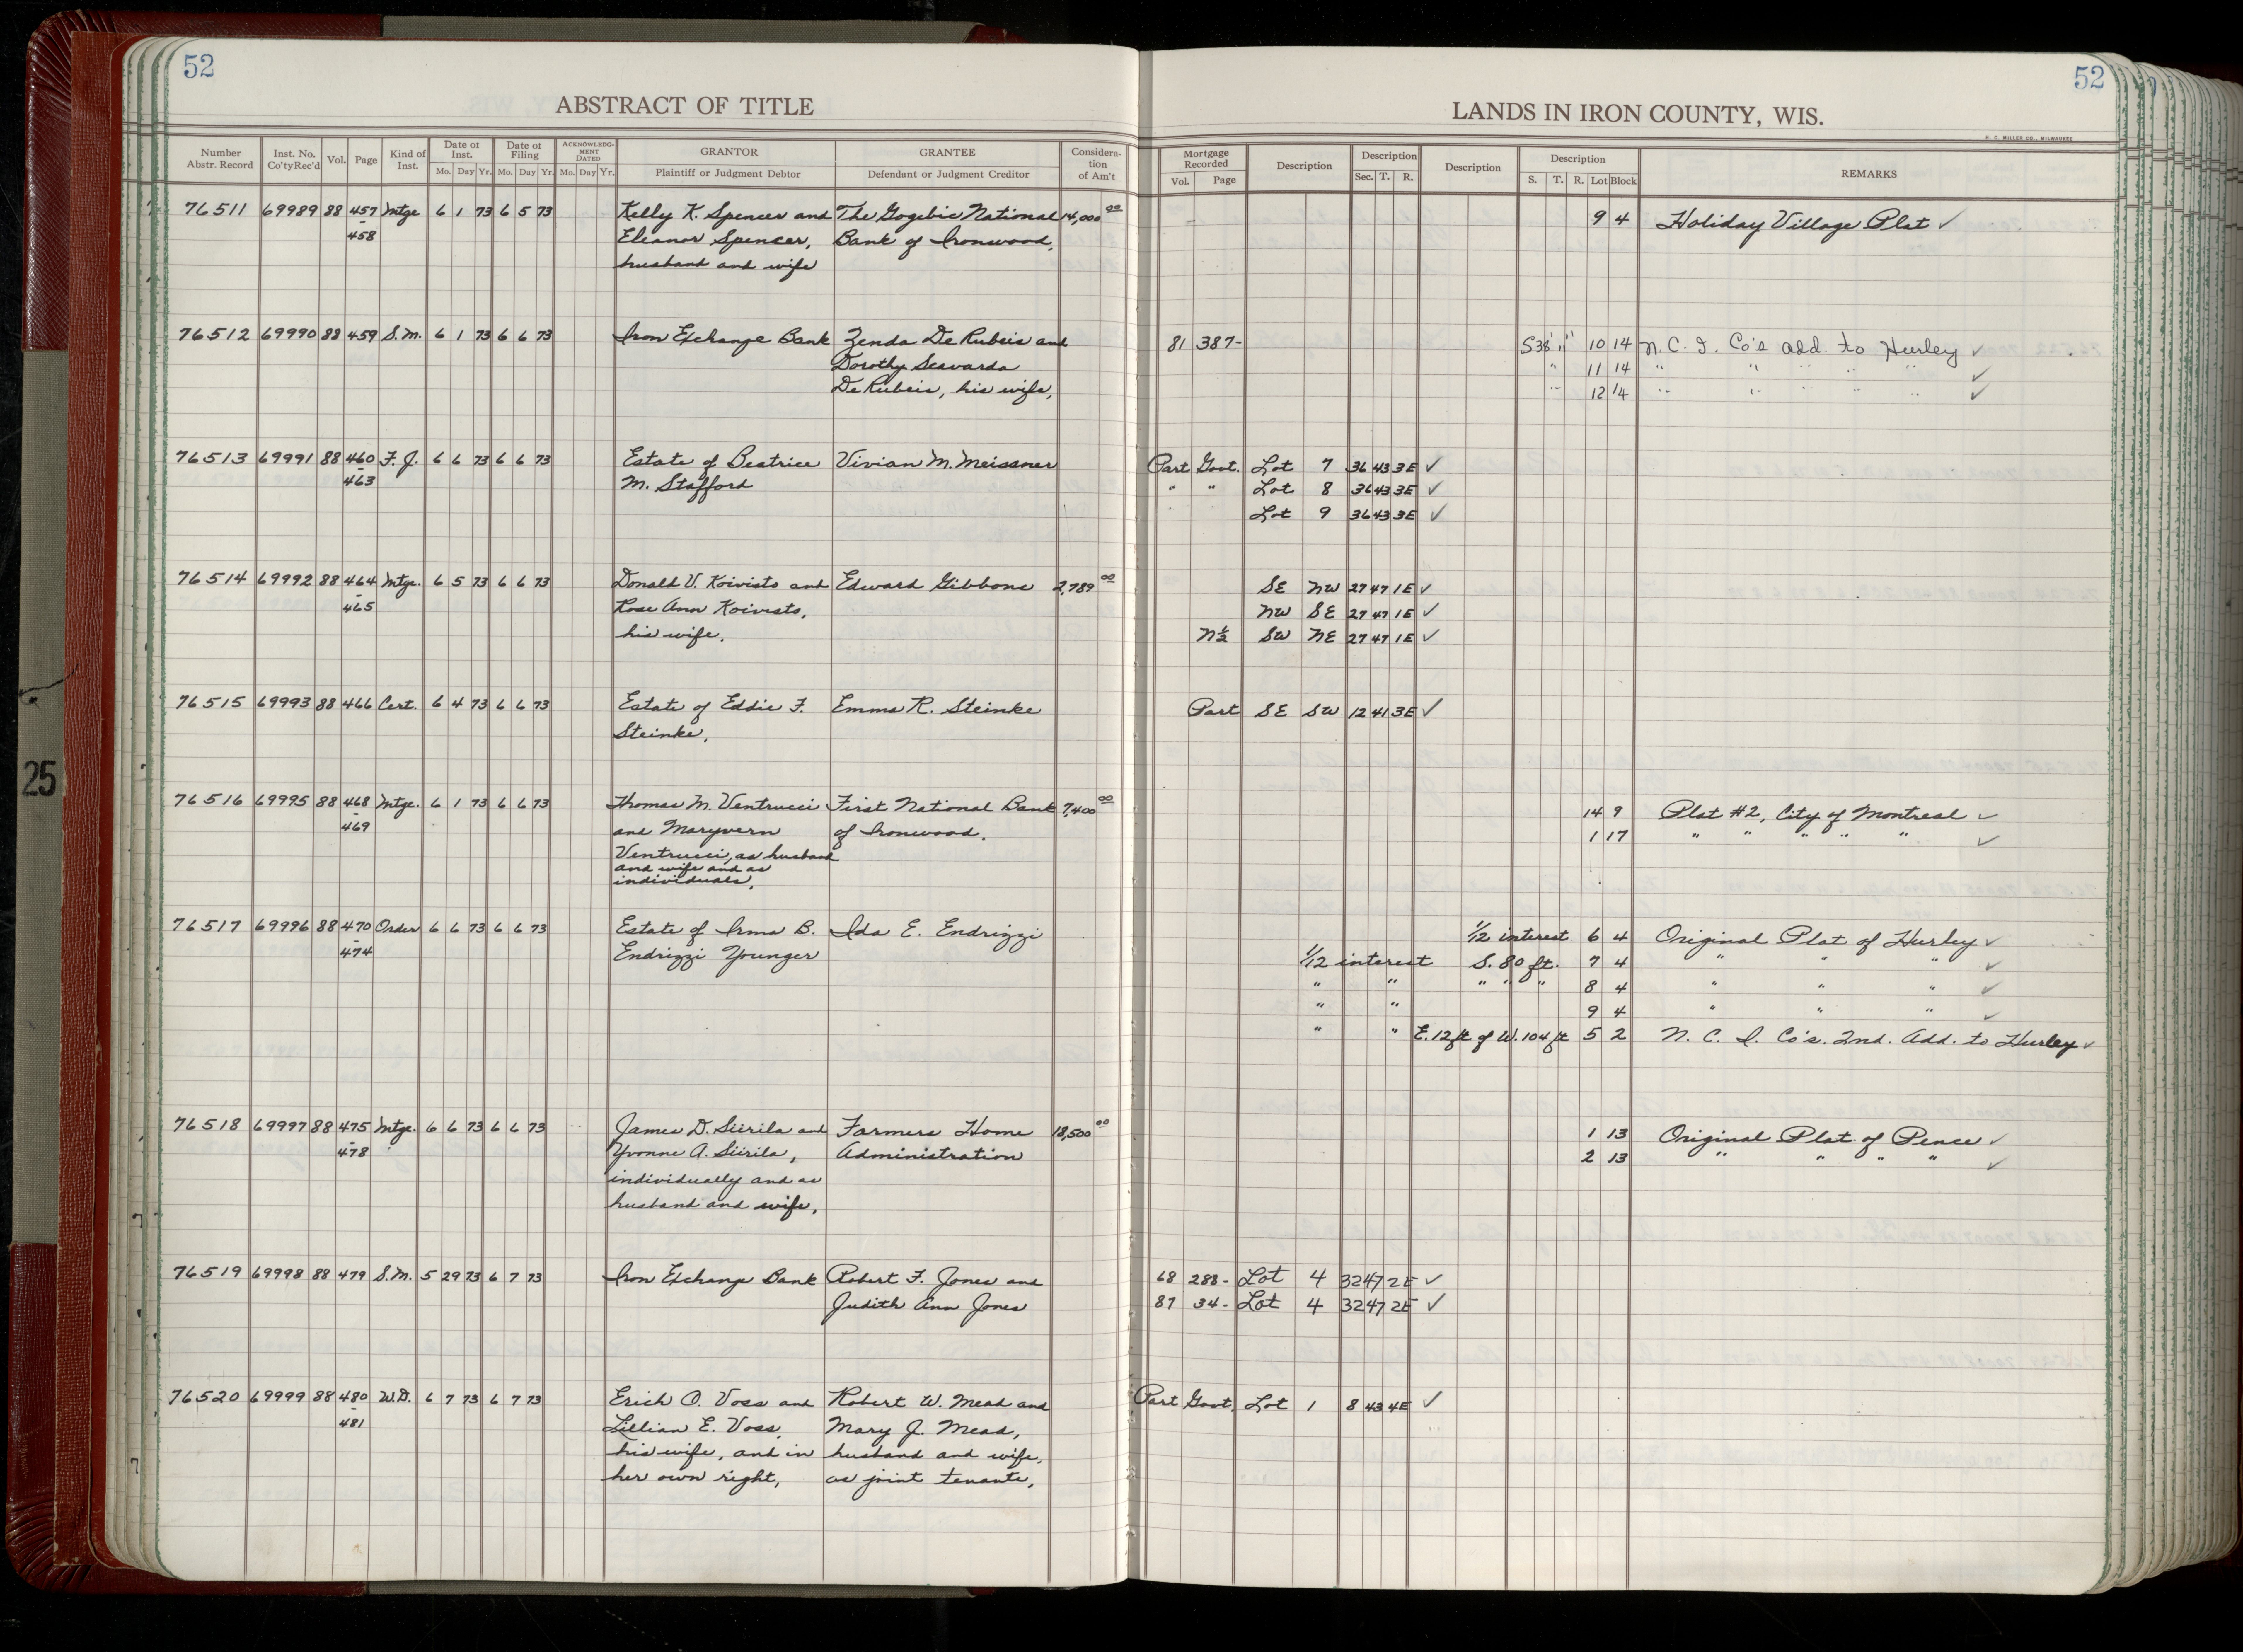 52
52
ABSTRACT OF TITLE
LANDS IN IRON COUNTY, WIS.
H. C. MILLER CO., MILWAUKEE
Number Abstr. Record | Inst. No. Co'tyRec'd | Vol. | Page | Kind of Inst. | Date of Inst. Mo. Day Yr. | Date of Filing Mo. Day Yr. | ACKNOWLEDGMENT DATED Mo. Day Yr. | GRANTOR Plaintiff or Judgment Debtor | GRANTEE Defendant or Judgment Creditor | Consideration of Am't | Mortgage Recorded Vol. Page | Description | Description Sec. T. R. | Description | Description S. T. R. Lot Block | REMARKS
76511 69989 88 457 Mtge 6 1 73 6 5 73 Kelly K. Spencer and The Gogebic National 14,000 00 9 4 Holiday Village Plat ✓
- 458 Eleanor Spencer, Bank of Ironwood,
husband and wife
76512 69990 88 459 S.M. 6 1 73 6 6 73 Iron Exchange Bank Zenda De Rubeis and 81 387- S38'11" 10 14 N. C. I. Co's add. to Hurley ✓
Dorothy Scavarda " 11 14 " " " " " ✓
De Rubeis, his wife, " 12 14 " " " " " ✓
76513 69991 88 460 F.J. 6 6 73 6 6 73 Estate of Beatrice Vivian M. Meissner Part Govt. Lot 7 36 43 3E ✓
- 463 M. Stafford " " Lot 8 36 43 3E ✓
Lot 9 36 43 3E ✓
76514 69992 88 464 Mtge. 6 5 73 6 6 73 Donald V. Koivisto and Edward Gibbons 2,789 00 SE NW 27 47 1E ✓
- 465 Rose Ann Koivisto, NW SE 27 47 1E ✓
his wife, N½ SW NE 27 47 1E ✓
76515 69993 88 466 Cert. 6 4 73 6 6 73 Estate of Eddie F. Emma R. Steinke Part SE SW 12 41 3E ✓
Steinke,
76516 69995 88 468 Mtge. 6 1 73 6 6 73 Thomas M. Ventrucci First National Bank 7,400 00 14 9 Plat #2, City of Montreal ✓
- 469 and Maryvern of Ironwood. 1 17 " " " " " ✓
Ventrucci, as husband
and wife and as
individuals,
76517 69996 88 470 Order 6 6 73 6 6 73 Estate of Irma B. Ida E. Endrizzi 1/12 interest 6 4 Original Plat of Hurley ✓
- 474 Endrizzi Younger 1/12 interest S. 80 ft. 7 4 " " " ✓
" " " " " 8 4 " " " ✓
" " 9 4 " " " ✓
" " E. 12 ft of W. 104 ft 5 2 N. C. I. Co's. 2nd. Add. to Hurley ✓
76518 69997 88 475 Mtge. 6 6 73 6 6 73 James D. Siirila and Farmers Home 18,500 00 1 13 Original Plat of Pence ✓
- 478 Yvonne A. Siirila, Administration 2 13 " " " " ✓
individually and as
husband and wife,
76519 69998 88 479 S.M. 5 29 73 6 7 73 Iron Exchange Bank Robert F. Jones and 68 288- Lot 4 32 47 2E ✓
Judith Ann Jones 87 34- Lot 4 32 47 2E ✓
76520 69999 88 480 W.D. 6 7 73 6 7 73 Erich O. Voss and Robert W. Mead and Part Govt. Lot 1 8 43 4E ✓
- 481 Lillian E. Voss, Mary J. Mead,
his wife, and in husband and wife,
her own right, as joint tenants,
25